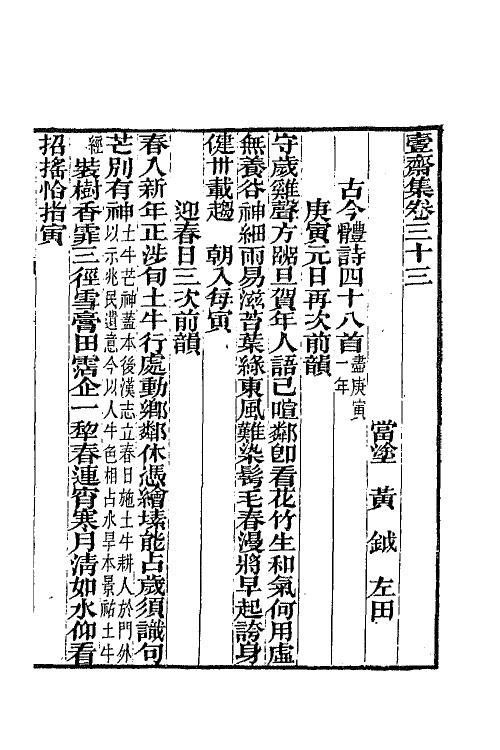 壹齋集卷三十三
當塗 黃鉞 左田
古今體詩四十八首盡庚寅一年
庚寅元日再次前韻
守歲雞聲方礙旦賀年人語已喧鄰卽看花竹生和氣何用虛
無養谷神細雨易滋苔葉綠東風難染鬂毛春漫將早起誇身
健卅載趨 朝入每寅
迎春日三次前韻
春入新年正涉旬土牛行處動鄉鄰休憑繪塐能占歲須識句
芒別有神土牛芒神蓋本後漢志立春日施土牛耕人於門外以示兆民遺意今以人牛色相占水旱本景祐土牛
經裝樹香霏三徑雪膏田霑企一犂春連宵寒月清如水仰看
招搖恰指寅